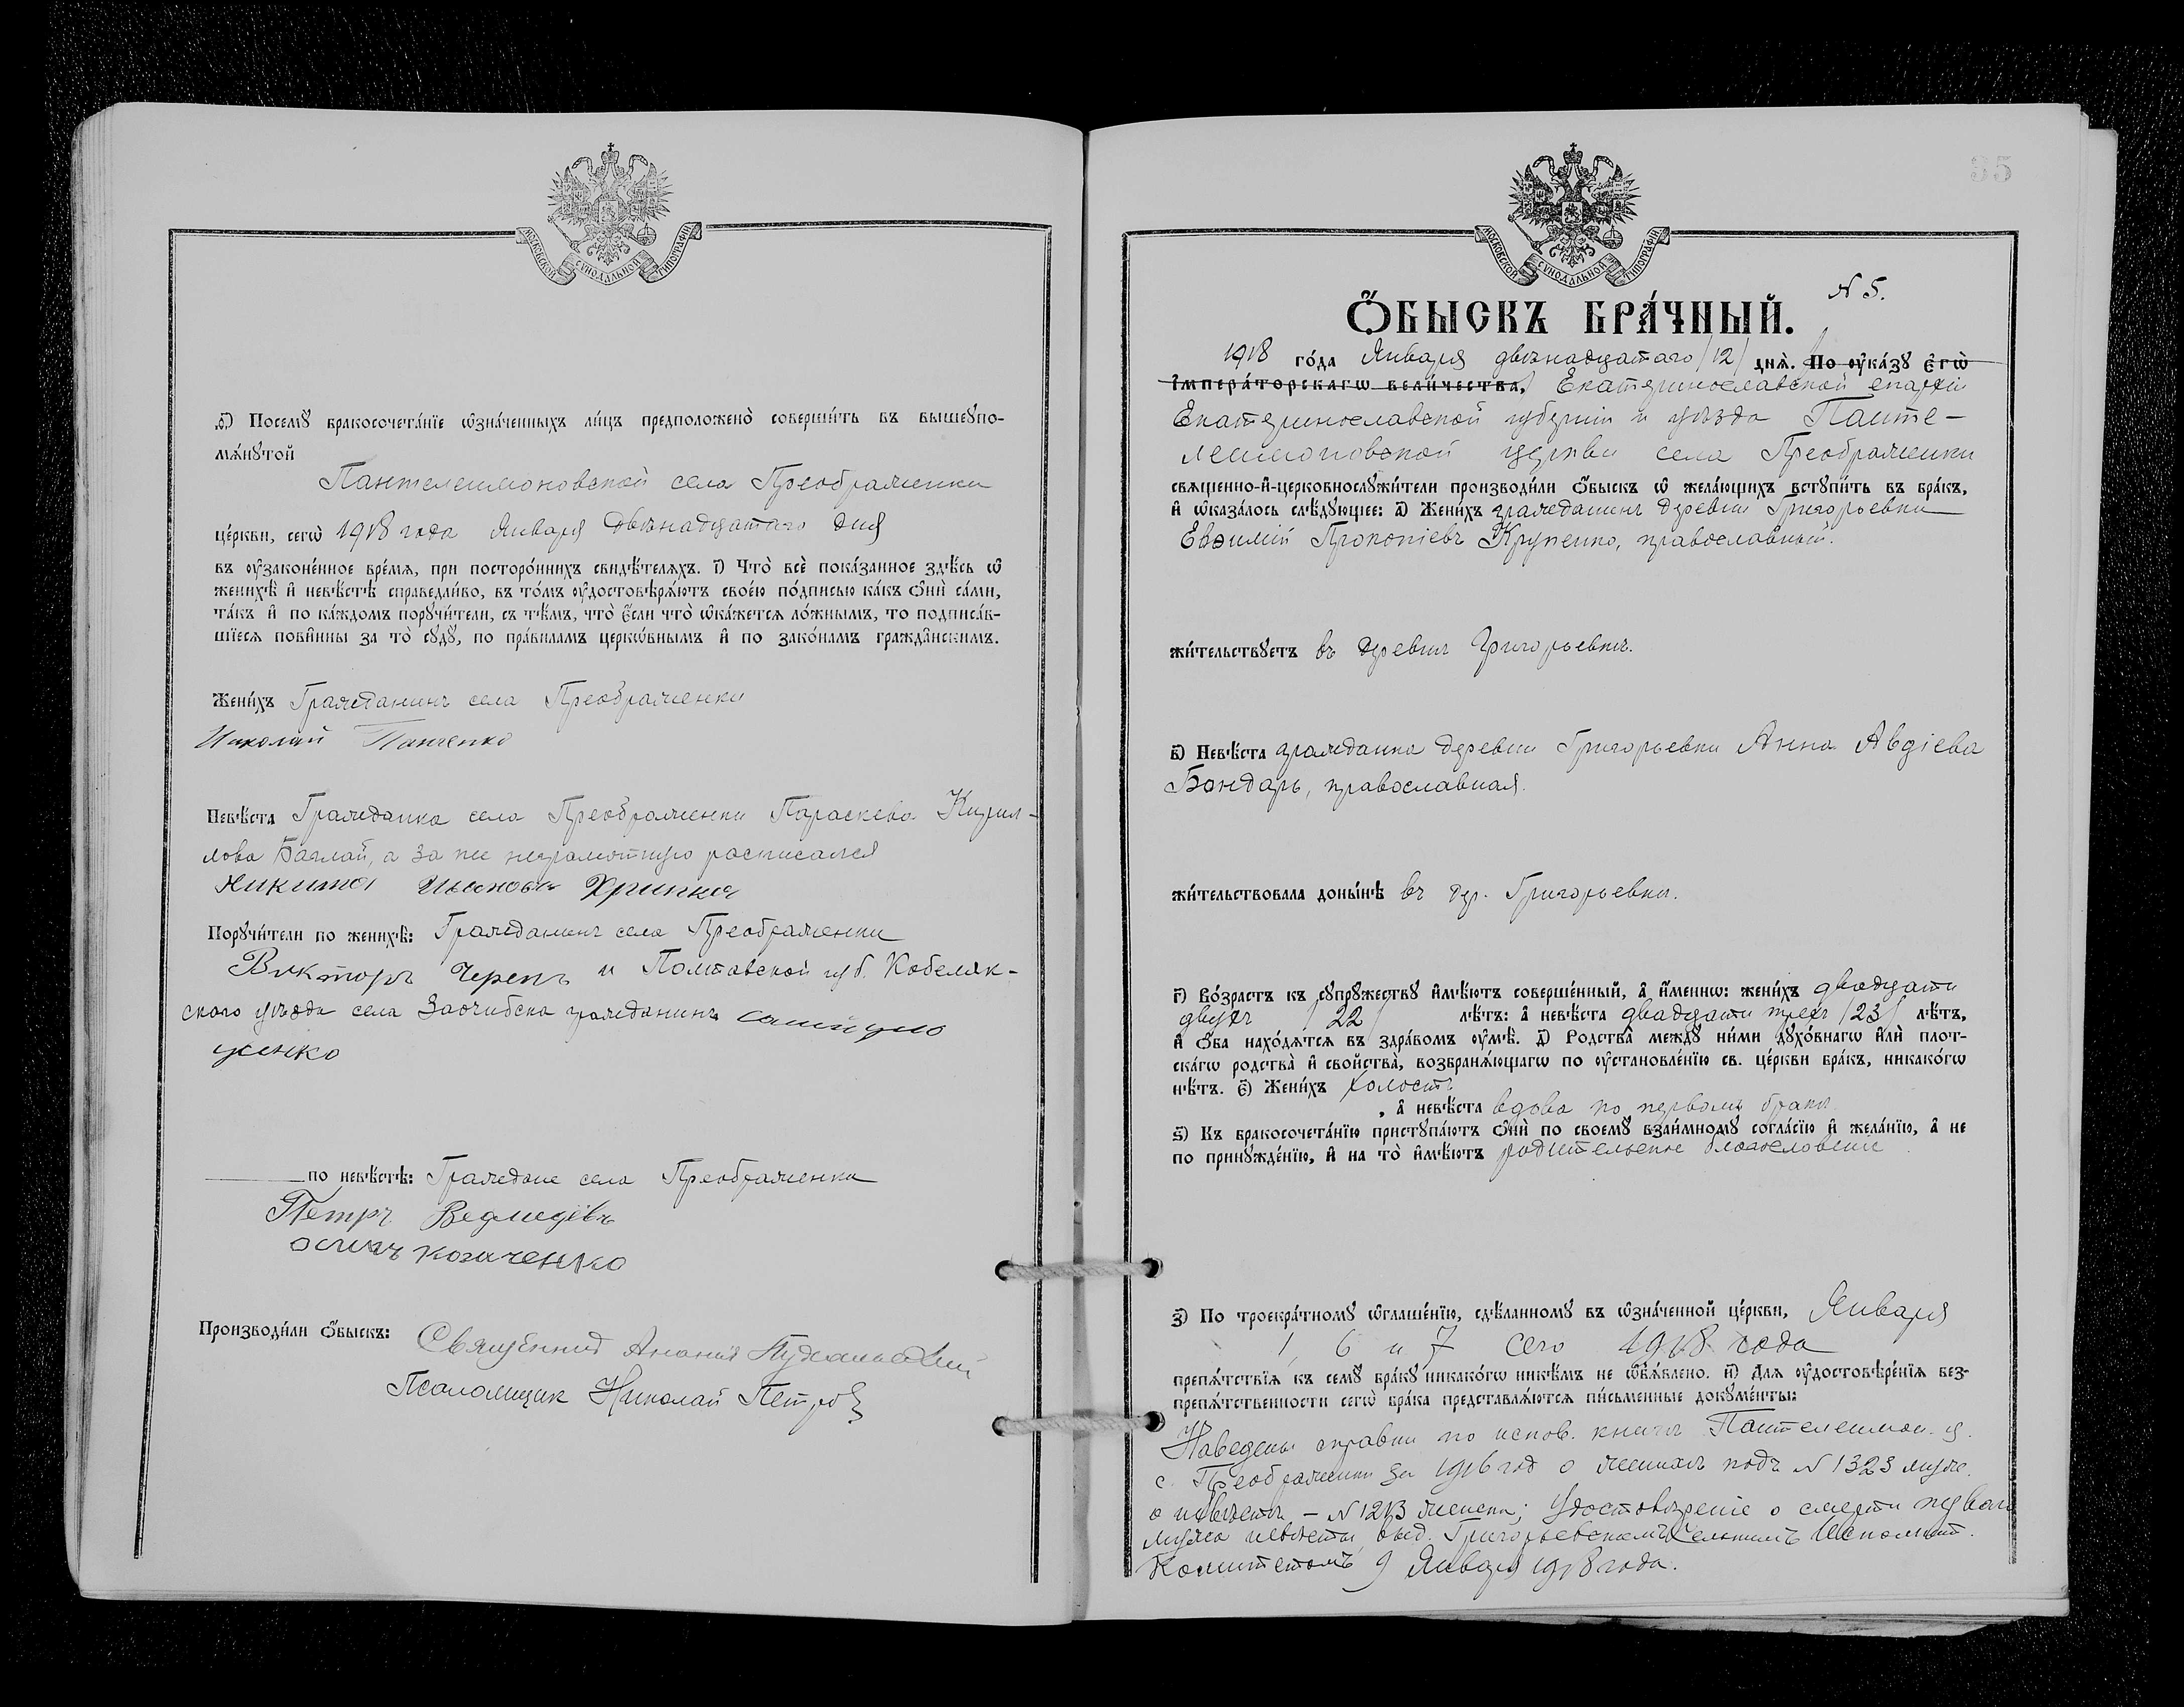 МОСКОВСКОЙ СѴНОДАЛЬНОЙ ТИПОГРАФІИ
Ѳ҃) Посемꙋ̀ бракосочета́нїе ѡ҆зна́ченныхъ ли́цъ предположено̀ соверши́ть въ вышеꙋпо-
мѧ́нꙋтой
Пантелеимоновской села Преображенки
це́ркви, сегѡ̀ 1918 года Января двѣнадцатаго дня
въ ᲂу҆законе́нное вре́мѧ, при посторо́ннихъ свидѣ́телѧхъ. І҃) Что̀ всѐ пока́занное здѣ́сь ѡ҆
женихѣ̀ и҆ невѣ́стѣ справедли́во, въ то́мъ ᲂу҆достовѣрѧ́ютъ свое́ю по́дписью ка́къ ѻ҆нѝ са́ми,
та́къ и҆ по ка́ждомъ порꙋчи́тели, съ тѣ́мъ, что̀ є҆́сли что̀ ѡ҆ка́жетсѧ ло́жнымъ, то подписа́в-
шїесѧ пови́нны за то̀ сꙋдꙋ̀, по пра́виламъ церкѡ́внымъ и҆ по зако́намъ гражда́нскимъ.
Жени́хъ Гражданинъ села Преображенки
Николай Панченко
Невѣ́ста Гражданка села Преображенки Параскева Кирил-
лова Баглай, а за нее неграмотную расписался
Никита Иванова Хрипка
Порꙋчи́тели по женихѣ̀: Гражданинъ села Преображенки
Викторъ Черепъ и Полтавской губ. Кобеляк-
скаго уѣзда села Заочибска гражданинъ
по невѣ́стѣ: Граждане села Преображенки
Петръ Ведмедевъ
осипъ козиченко
Производи́ли ѻ҆́быскъ: Священникъ Ананія
Псаломщик Николай Петров
МОСКОВСКОЙ СѴНОДАЛЬНОЙ ТИПОГРАФІИ
35
N 5.
Ѻ҆́БЫСКЪ БРА́ЧНЫЙ.
1918 го́да Января двѣнадцатаго /12/ днѧ̀. По ᲂу҆ка́зꙋ є҆гѡ̀
і҆мпера́торскагѡ вели́чества, Екатеринославской епархіи
Екатеринославской губерніи и уѣзда Панте-
леимоновской церкви села Преображенки
свѧще́нно-и҆-церковнослꙋжи́тели производи́ли ѻ҆́быскъ ѡ҆ жела́ющихъ встꙋпи́ть въ бра́къ,
и҆ ѡ҆каза́лось слѣ́дꙋющее: А҃) Жени́хъ гражданинъ деревни Григорьевки
Евѳимій Прокопіевъ Крупенко, православный.
жи́тельствꙋетъ въ деревнѣ Григорьевкѣ.
В҃) Невѣ́ста гражданка деревни Григорьевки Анна Авдіева
Бондарь, православная.
жи́тельствовала доны́нѣ въ дер. Григорьевки.
Г҃) Во́зрастъ къ сꙋпрꙋ́жествꙋ и҆мѣ́ютъ соверше́нный, а҆ и҆́меннѡ: жени́хъ двадцати
двухъ /22/ лѣ́тъ: а҆ невѣ́ста двадцати трехъ /23/ лѣ́тъ,
и҆ ѻ҆́ба нахо́дѧтсѧ въ здра́вомъ ᲂу҆мѣ̀. Д҃) Родства̀ междꙋ̀ ни́ми дꙋхо́внагѡ и҆лѝ плот-
ска́гѡ родства̀ и҆ свойства̀, возбранѧ́ющагѡ по ᲂу҆становле́нїю св. це́ркви бра́къ, никако́гѡ
нѣ́тъ. Є҃) Жени́хъ холостъ
, а҆ невѣ́ста вдова по первомъ бракѣ.
Ѕ҃) Къ бракосочета́нїю пристꙋпа́ютъ ѻ҆нѝ по своемꙋ̀ взаи́мномꙋ согла́сїю и҆ жела́нїю, а҆ не
по принꙋжде́нїю, и҆ на то̀ и҆мѣ́ютъ родительское благословеніе
З҃) По троекра́тномꙋ ѡ҆глаше́нїю, сдѣ́ланномꙋ въ ѡ҆зна́ченной це́ркви, Января
1, 6 и 7 сего 1918 года
препѧ́тствїѧ къ семꙋ̀ бра́кꙋ никако́гѡ никѣ́мъ не ѡ҆б̾ѧ́влено. И҃) Длѧ ᲂу҆достовѣре́нїѧ без-
препѧ́тственности сегѡ̀ бра́ка представлѧ́ютсѧ пи́сьменные докꙋме́нты:
Наведены справки по испов. книгѣ Пантелеимон. ц.
с. Преображенки за 1916 год о женихѣ подъ N 1323 муже.
о невѣстѣ – N 1213 женска; Удостовѣреніе о смерти перваго
мужа невѣсты, выд. Григорьевскимъ Сельскимъ Исполнит.
Комитетомъ 9 Января 1918 года.